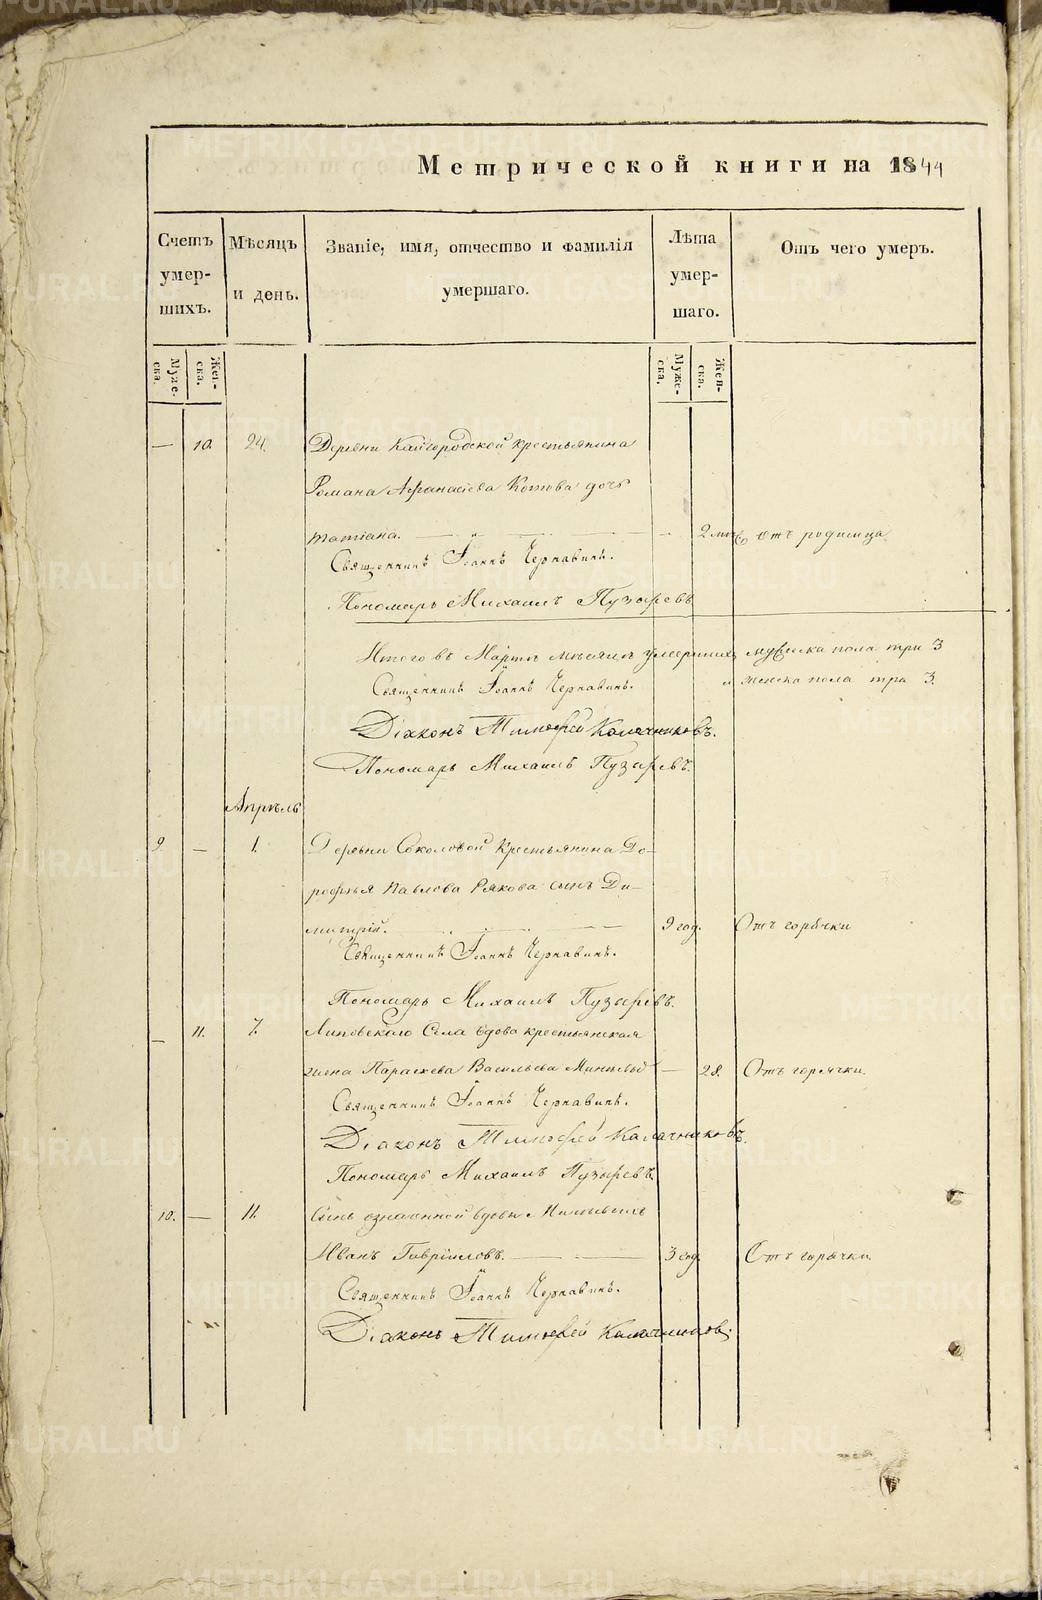 Метрической книги на 1844
Счетъ умер-шихъ.
Мѣсяцъ и день.
Званіе, имя, отчество и фамилія умершаго.
Лѣта умер-шаго.
Отъ чего умеръ.
Муже-ска.
Жен-ска.
Муже-ска.
Жен-ска.
— 10. 24. Деревни Кайгородской крестьянина
Романа Афанасіева Котова дочь
татіана. — 2 отъ родимца
Священникъ Іоаннъ Чернавинъ.
Пономарь Михаилъ Пузыревъ
Итого въ Мартѣ мѣсяцѣ умершихъ мужеска пола три 3
Священникъ Іоаннъ Чернавинъ. и женска пола три 3.
Діаконъ Тимофей Калачниковъ.
Пономарь Михаилъ Пузыревъ.
Апрѣль
9 — 1. Деревни Соколовой Крестьянина До-
рофея Павлова сынъ Ди-
митрій. 9 год. Отъ горячки
Священникъ Іоаннъ Чернавинъ.
Пономарь Михаилъ Пузыревъ.
— 11. 7. Липовскаго Села вдова крестьянская
жена Параскева Васильева — 28. Отъ горячки.
Священникъ Іоаннъ Чернавинъ.
Діаконъ Тимофей Калачниковъ.
Пономарь Михаилъ Пузыревъ.
10. — 11. Сынъ означенной вдовы
Иванъ Гавриловъ. — 3 год. Отъ горячки.
Священникъ Іоаннъ Чернавинъ.
Діаконъ Тимофей Калачниковъ.
METRIKI.GASO-URAL.RU